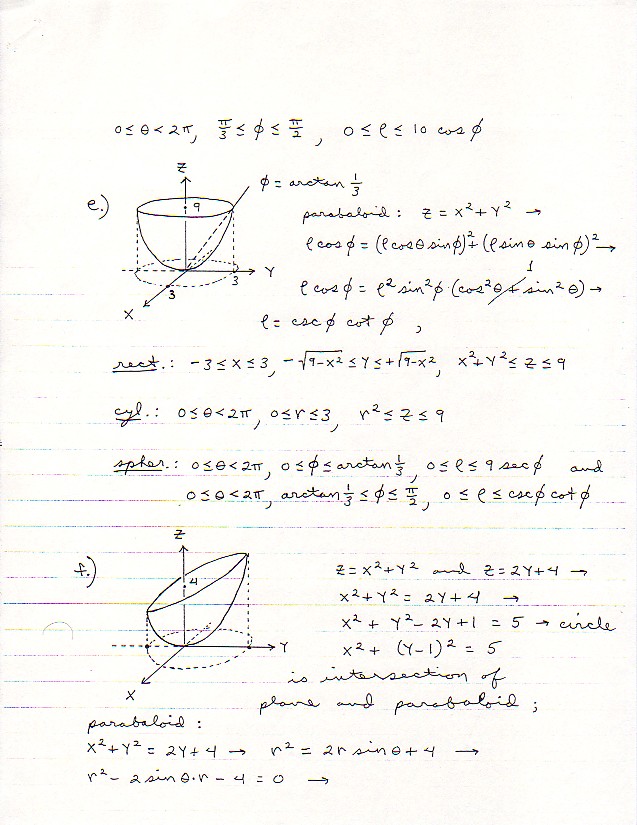 0 ≤ θ < 2π, π/3 ≤ φ ≤ π/2, 0 ≤ ρ ≤ 10 cos φ
e.)
Z
9
3
3
Y
X
φ = arctan 1/3
parabaloid: z = x² + y² →
ρ cos φ = (ρ cos θ sin φ)² + (ρ sin θ sin φ)² →
1
ρ cos φ = ρ² sin² φ (cos² θ + sin² θ) →
ρ = csc φ cot φ ;
rect.: -3 ≤ x ≤ 3, -√(9-x²) ≤ y ≤ +√(9-x²), x² + y² ≤ z ≤ 9
cyl.: 0 ≤ θ < 2π, 0 ≤ r ≤ 3, r² ≤ z ≤ 9
spher.: 0 ≤ θ < 2π, 0 ≤ φ ≤ arctan 1/3, 0 ≤ ρ ≤ 9 sec φ and
0 ≤ θ < 2π, arctan 1/3 ≤ φ ≤ π/2, 0 ≤ ρ ≤ csc φ cot φ
f.)
Z
4
Y
X
z = x² + y² and z = 2y + 4 →
x² + y² = 2y + 4 →
x² + y² - 2y + 1 = 5 → circle
x² + (y-1)² = 5
is intersection of
plane and paraboloid ;
parabaloid :
x² + y² = 2y + 4 → r² = 2r sin θ + 4 →
r² - 2 sin θ · r - 4 = 0 →